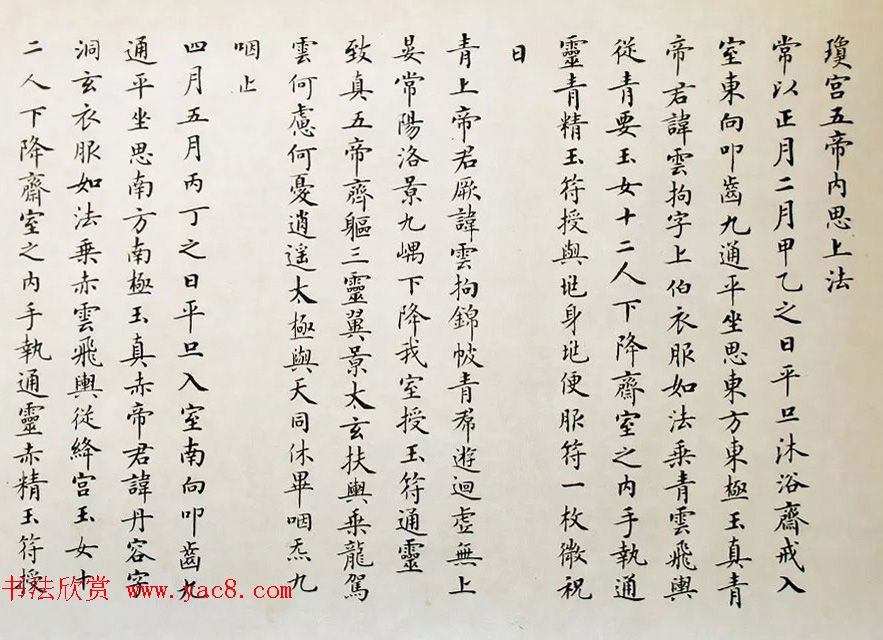 瓊宮五帝内思上法
常以正月二月甲乙之日平旦沐浴齋戒入
室東向叩齒九通平坐思東方東極玉真青
帝君諱雲拘字上伯衣服如法乗青雲飛輿
從青要玉女十二人下降齋室之内手執通
靈青精玉符授與地身地便服符一枚微祝
曰
青上帝君厥諱雲拘錦帔青帬遊迴虚無上
晏常陽洛景九嵎下降我室授玉符通靈
致真五帝齊軀三靈翼景太玄扶輿乗龍駕
雲何慮何憂逍遥太極與天同休畢咽炁九
咽止
四月五月丙丁之日平旦入室南向叩齒九
通平坐思南方南極玉真赤帝君諱丹容字
洞玄衣服如法乗赤雲飛輿從絳宮玉女十
二人下降齋室之内手執通靈赤精玉符授
书法欣赏 www.yac8.com